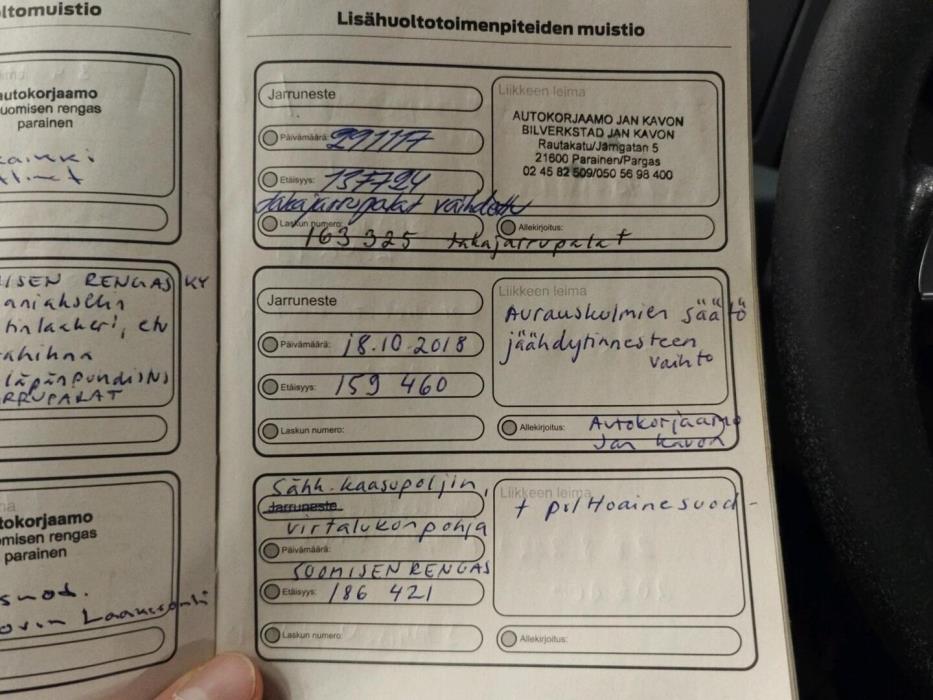 ltomuistio
autokorjaamo
uomisen rengas
parainen
ISEN RENGAS KY
RRUPALAT
tokorjaamo
omisen rengas
parainen
suod.
Lisähuoltotoimenpiteiden muistio
Jarruneste
Päivämäärä: 291117
Etäisyys: 137724
takajarrupalat vaihdettu
Laskun numero:
163 325 takajarrupalat
Liikkeen leima
AUTOKORJAAMO JAN KAVON
BILVERKSTAD JAN KAVON
Rautakatu/Järngatan 5
21600 Parainen/Pargas
02 45 82 509/050 56 98 400
Allekirjoitus:
Jarruneste
Päivämäärä: 18.10.2018
Etäisyys: 159 460
Laskun numero:
Liikkeen leima
Aurauskulmien säätö
jäähdytinnesteen
vaihto
Allekirjoitus: Autokorjaamo
Jan Kavon
Sähk.kaasupoljin,
Jarruneste
virtalukonpohja
Päivämäärä:
SUOMISEN RENGAS
Etäisyys: 186 421
Laskun numero:
Liikkeen leima
+ polttoainesuod-
Allekirjoitus: